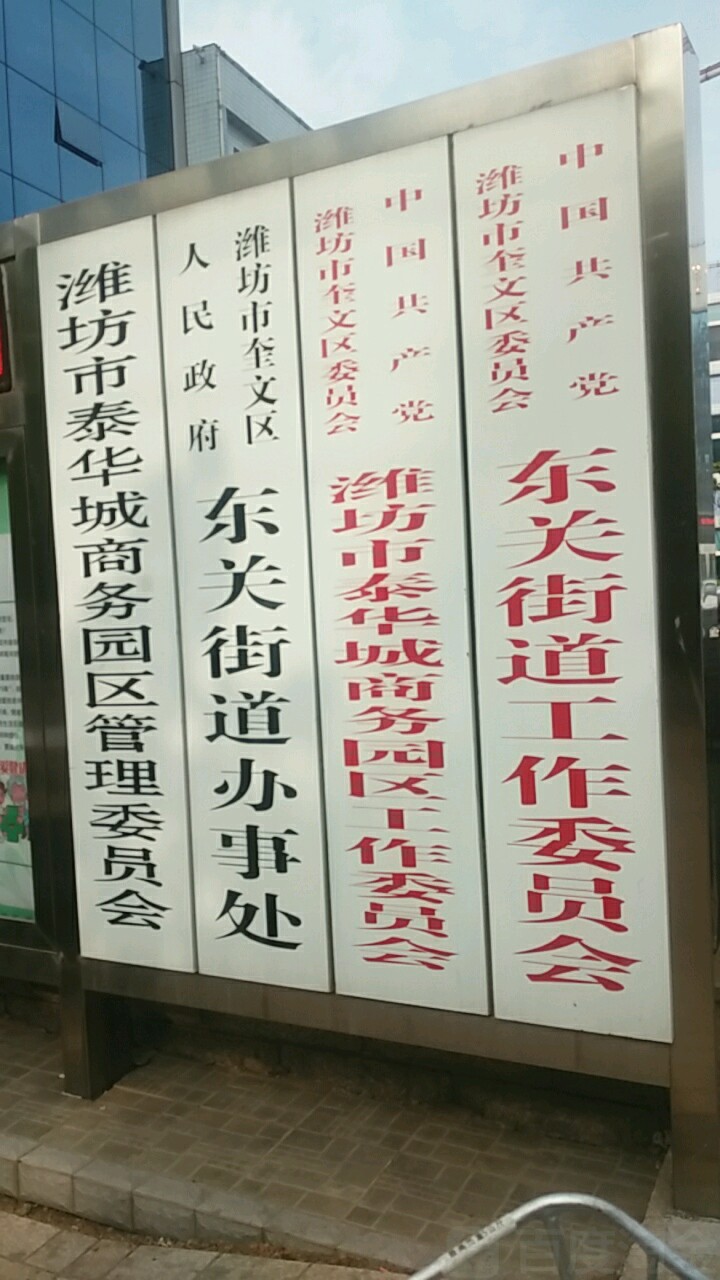 中国共产党
潍坊市奎文区委员会
东关街道工作委员会
中国共产党
潍坊市奎文区委员会
潍坊市泰华城商务园区工作委员会
潍坊市奎文区
人民政府
东关街道办事处
潍坊市泰华城商务园区管理委员会